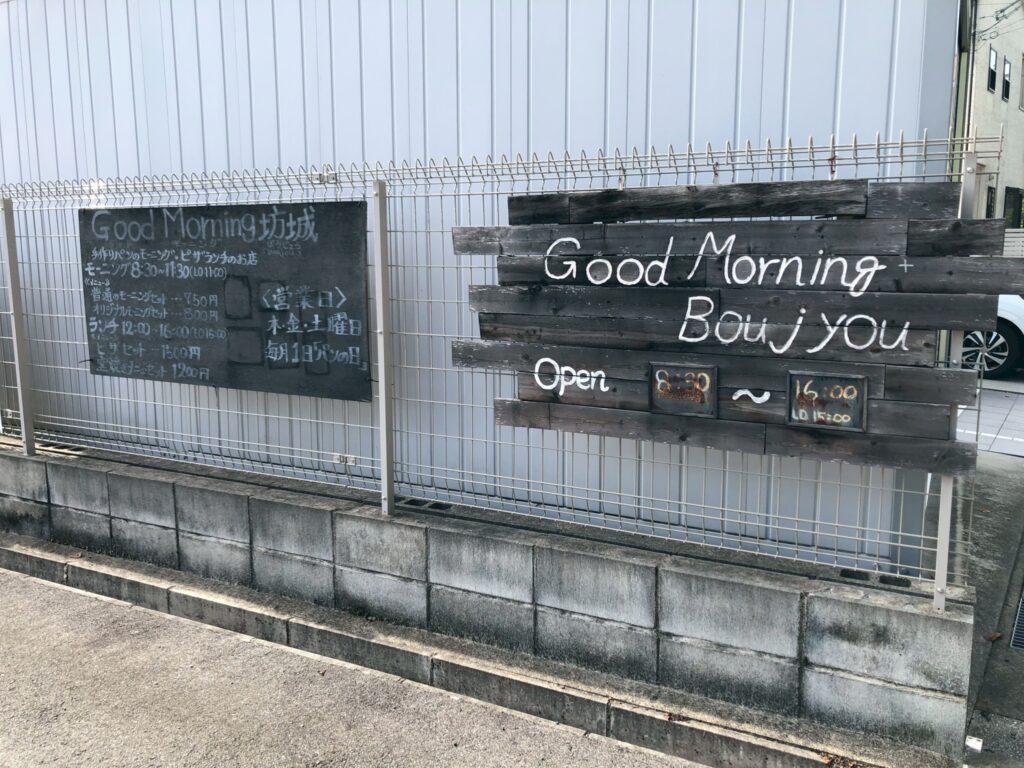 Good Morning 坊城
手作りパンのモーニング・ピザランチのお店
モーニング 8:30~11:30(LO11:00)
普通のモーニングセット…450円
オリジナルモーニングセット…800円
ランチ 12:00~16:00(LO15:00)
ピザセット…1500円
1200円
〈営業日〉
木・金・土曜日
毎月1日『パンの日』
Good Morning
Boujyou
Open 8:30 ~ 16:00
LO.15:00